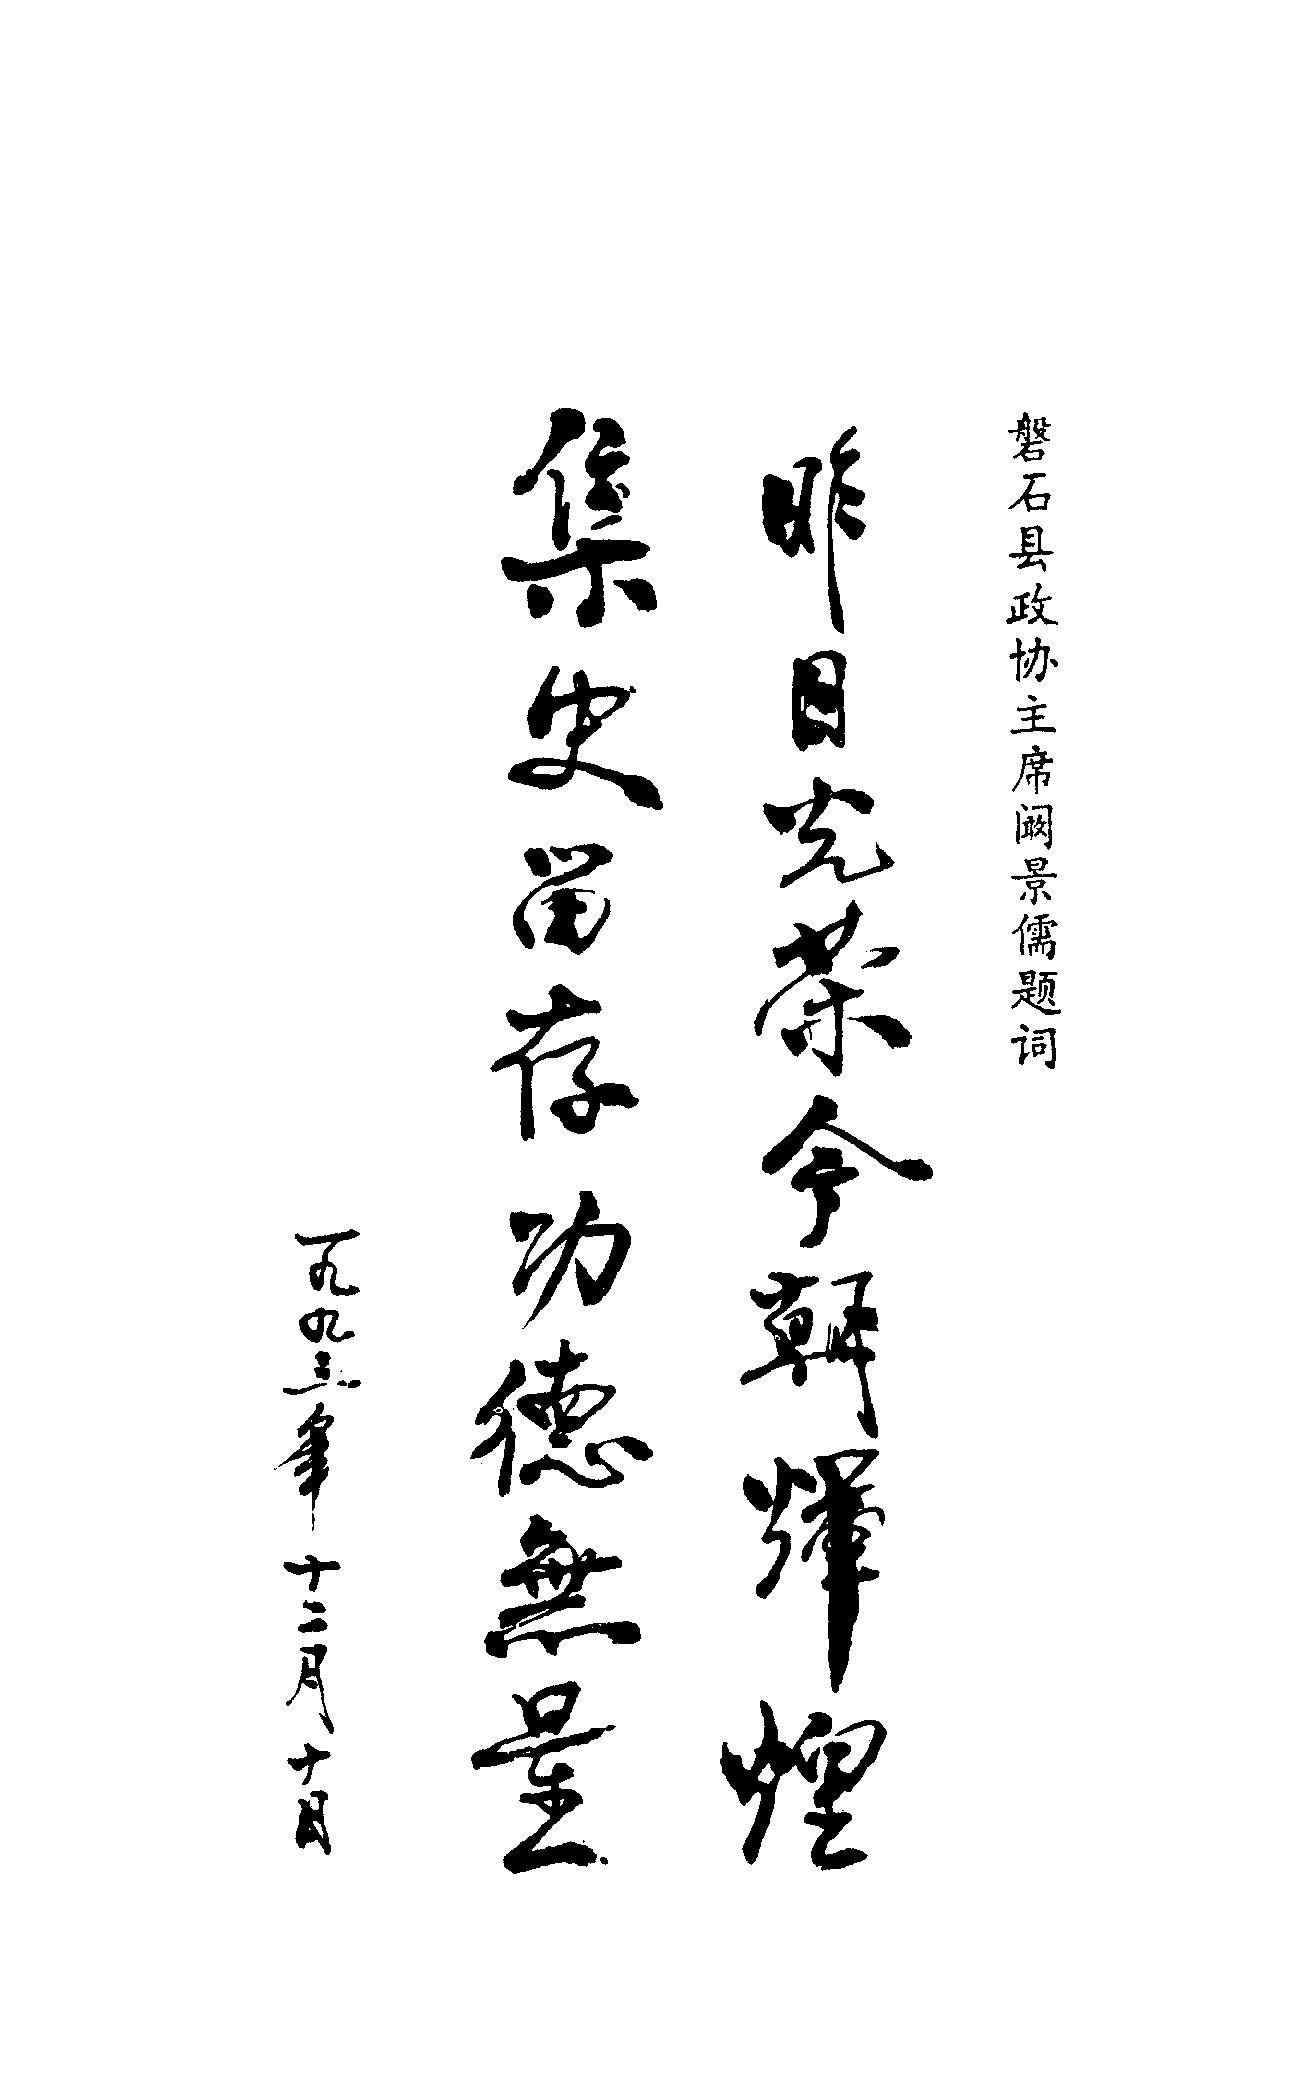 磐石县政协主席阚景儒题词
昨日光荣今朝輝煌
集史留存功德無量
一九九三年十二月十日